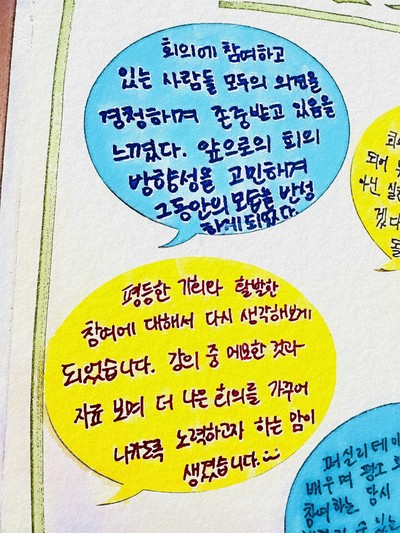 회의에 참여하고
있는 사람들 모두의 의견을
경청하며 존중받고 있음을
느꼈다. 앞으로의 회의
방향성을 고민하며
그동안의 모습을 반성
하게 되었다.
평등한 기회와 활발한
참여에 대해서 다시 생각해보게
되었습니다. 강의 중 메모한 것과
자료 보며 더 나은 회의를 가꾸어
나가도록 노력하고자 하는 맘이
생겼습니다.
회의
되어
아닌
겠다
퍼실리테이
배우며 평소
참여하는 당시